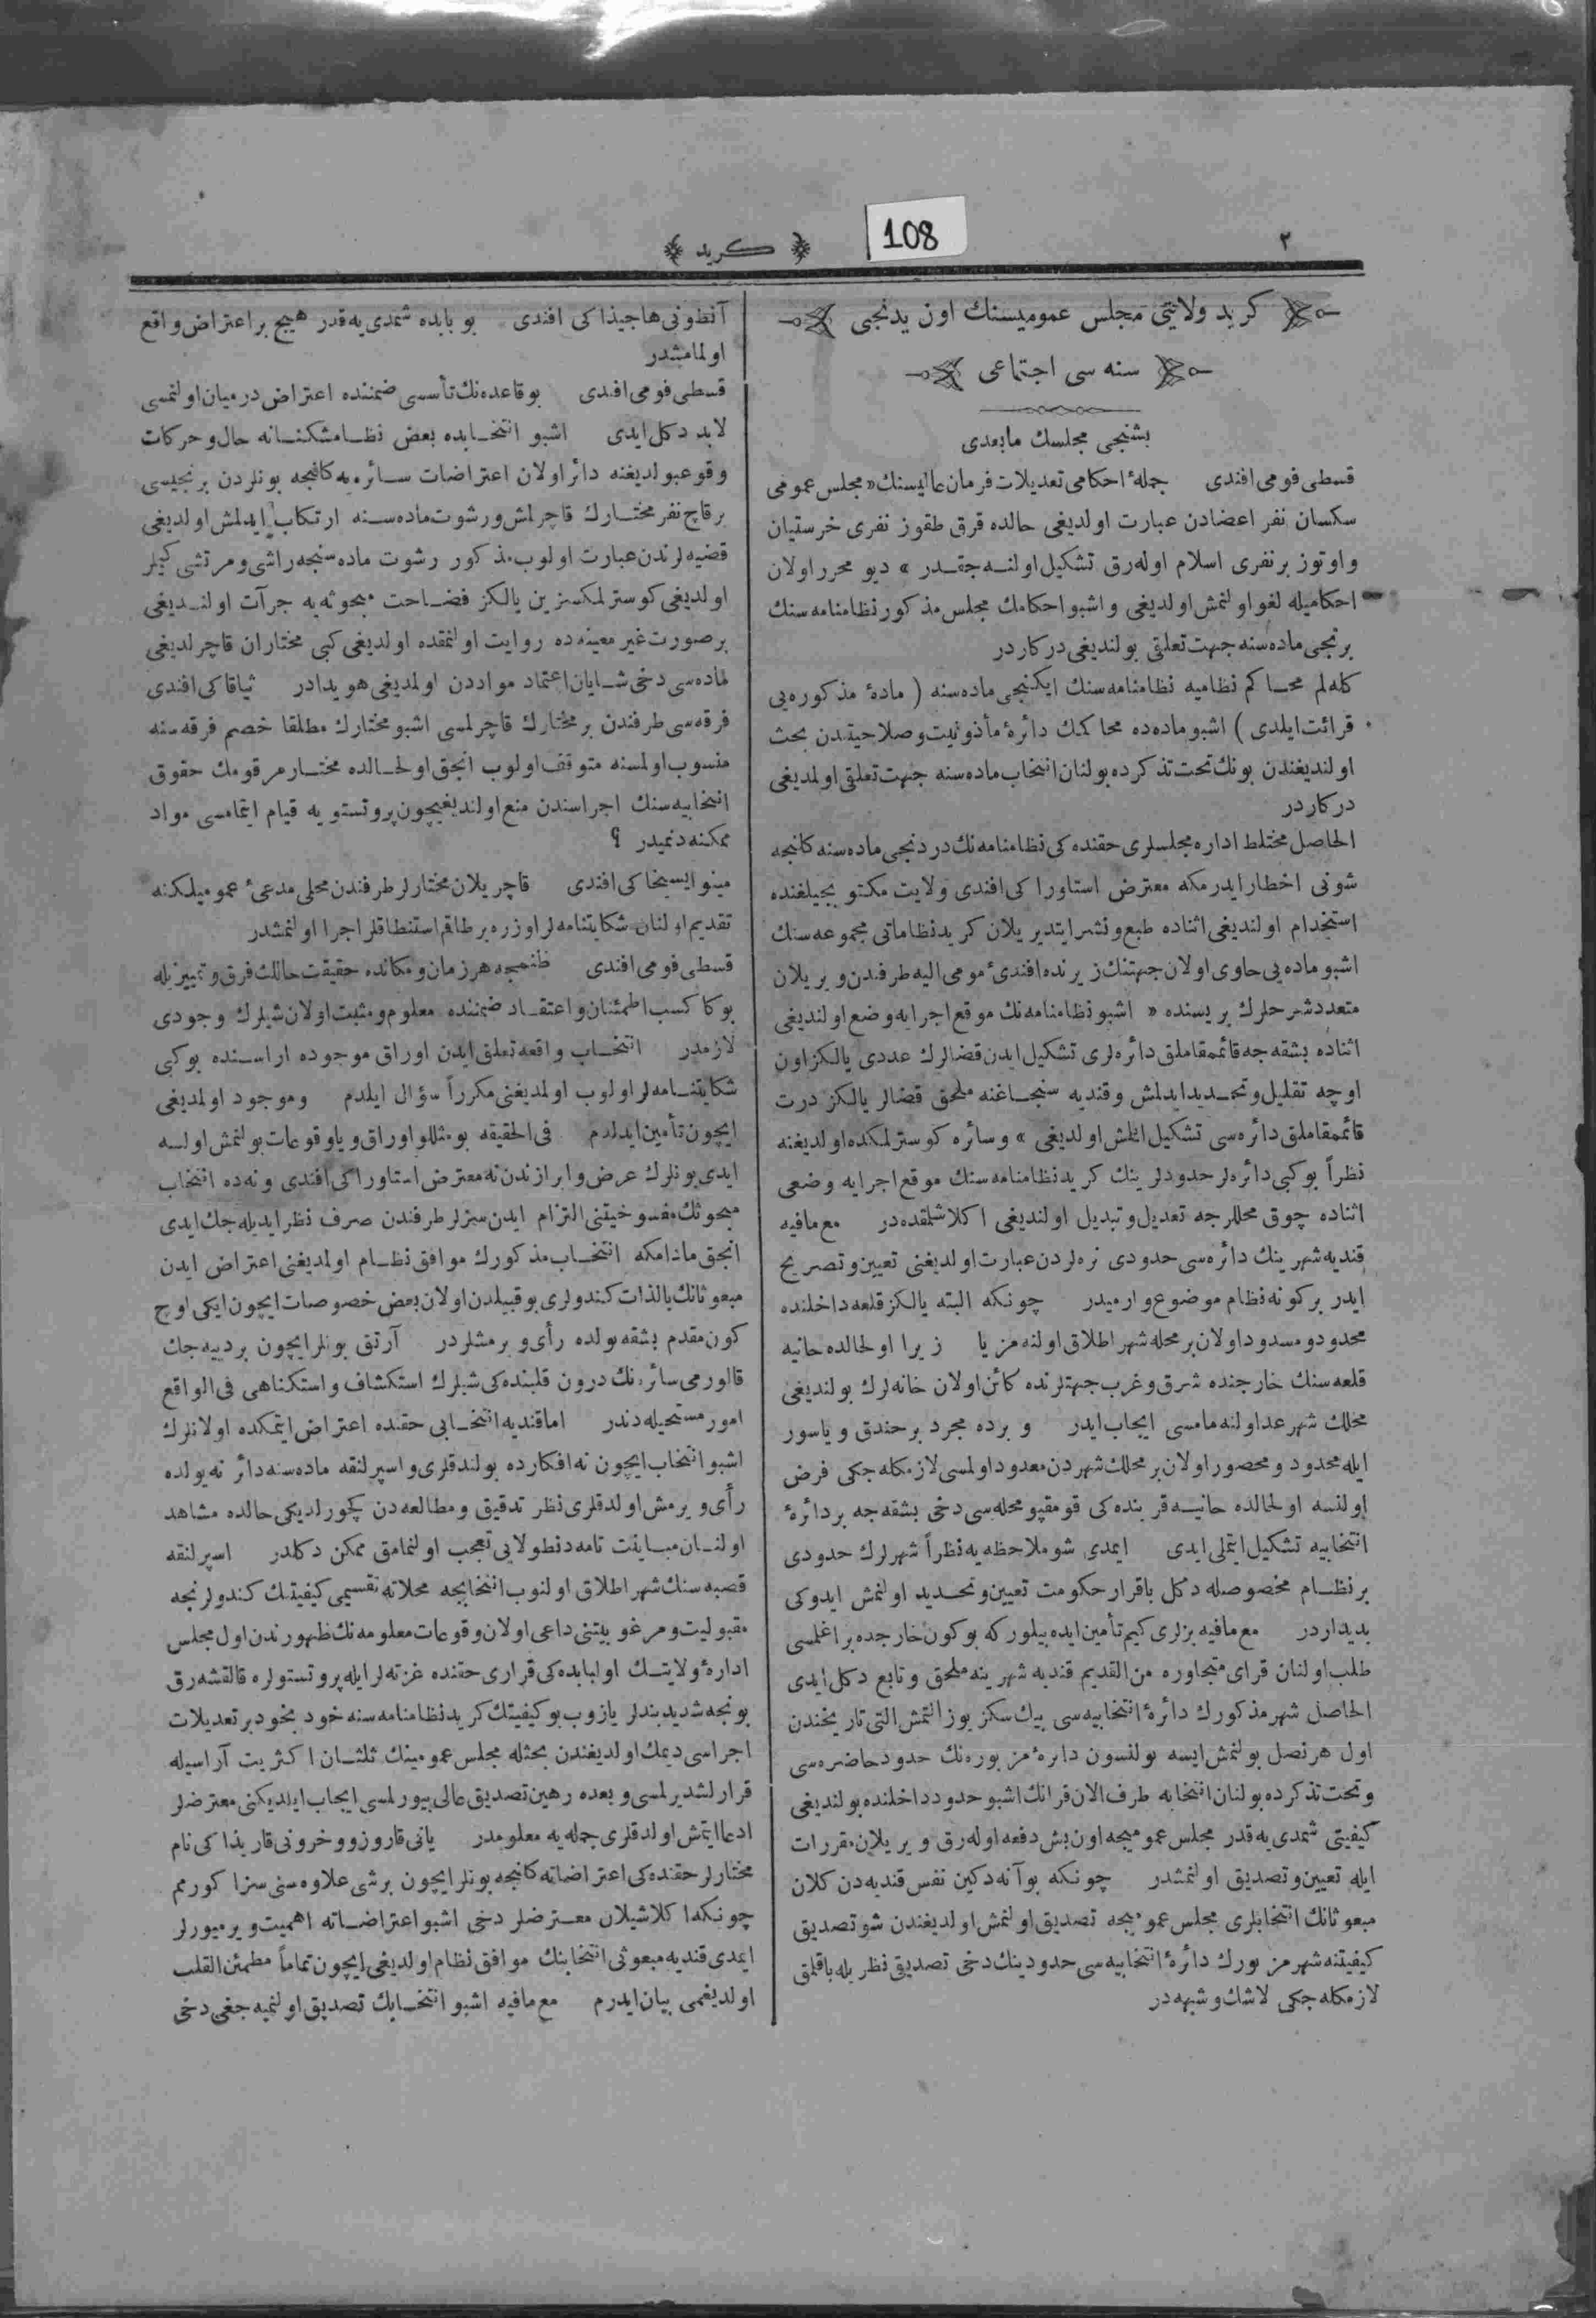 ٢
108
﴿ كريد ﴾
كريد ولايتى مجلس عموميسنك اون يدنجى
سنه سى اجتماعى
بشنجى مجلسك مابعدى
قسطى فومى افندى جملهٔ احكامى تعديلات فرمان عاليسنك « مجلس عمومى
سكسان نفر اعضادن عبارت اولديغى حالده قرق طقوز نفرى خرستيان
و اوتوز بر نفرى اسلام اوله رق تشكيل اولنه جقدر » ديو محرر اولان
احكاميله لغو اولنمش اولديغى و اشبو احكامك مجلس مذكور نظامنامه سنك
برنجى ماده سنه جهت تعلقى بولنديغى دركاردر
كله لم محاكم نظاميه نظامنامه سنك ايكنجى ماده سنه ( مادهٔ مذكوره يى
قرائت ايلدى ) اشبو ماده ده محاكمك دائرهٔ مأذونيت و صلاحيتدن بحث
اولنديغندن بونك تحت تذكرده بولنان انتخاب ماده سنه جهت تعلقى اولمديغى
دركاردر
الحاصل مختلط اداره مجلسلرى حقنده كى نظامنامه نك دردنجى ماده سنه كلنجه
شونى اخطار ايدرمكه معترض استاوراكى افندى ولايت مكتوبجيلغنده
استخدام اولنديغى اثناده طبع و نشر ايتديريلان كريد نظاماتى مجموعه سنك
اشبو ماده يى حاوى اولان جهتنك زيرنده افندىٔ مومى اليه طرفندن ويريلان
متعدد شرحلرك بريسنده « اشبو نظامنامه نك موقع اجرايه وضع اولنديغى
اثناده بشقه جه قائممقاملق دائره لرى تشكيل ايدن قضالرك عددى يالكز اون
اوچه تقليل و تحديد ايدلمش و قنديه سنجاغنه ملحق قضالر يالكز درت
قائممقاملق دائره سى تشكيل ايتمش اولديغى » و سائره كوسترلمكده اولديغنه
نظراً بوكبى دائره لر حدودلرينك كريد نظامنامه سنك موقع اجرايه وضعى
اثناده چوق محللرجه تعديل و تبديل اولنديغى اكلاشلمقده در مع مافيه
قنديه شهرينك دائره سى حدودى نره لردن عبارت اولديغنى تعيين و تصريح
ايدر بركونه نظام موضوع وارميدر چونكه البته يالكز قلعه داخلنده
محدود و مسدود اولان بر محله شهر اطلاق اولنه مز يا زيرا اولحالده حانيه
قلعه سنك خارجنده شرق و غرب جهتلرنده كائن اولان خانه لرك بولنديغى
محللك شهر عد اولنه مامسى ايجاب ايدر و برده مجرد بر خندق و ياسور
ايله محدود و محصور اولان بر محلك شهردن معدود اولمسى لازمكله جكى فرض
اولنسه اولحالده حانيه قربنده كى قومقپو محله سى دخى بشقه جه بر دائرهٔ
انتخابيه تشكيل ايتملى ايدى ايمدى شو ملاحظه يه نظراً شهرلرك حدودى
بر نظام مخصوصله دكل باقرار حكومت تعيين و تحديد اولنمش ايدوكى
بديداردر مع مافيه بزلرى كيم تأمين ايده بيلوركه بوكون خارجده براغلمسى
طلب اولنان قراى متجاوره من القديم قنديه شهرينه ملحق و تابع دكل ايدى
الحاصل شهر مذكورك دائرهٔ انتخابيه سى بيك سكز يوز التمش التى تاريخندن
اول هر نصل بولنمش ايسه بولنسون دائره مزبوره نك حدود حاضره سى
و تحت تذكرده بولنان انتخابه طرف الان قرانك اشبو حدود داخلنده بولنديغى
كيفيتى شمدى يه قدر مجلس عموميجه اون بش دفعه اوله رق ويريلان مقررات
ايله تعيين و تصديق اولنمشدر چونكه بو آنه دكين نفس قنديه دن كلان
مبعوثانك انتخابلرى مجلس عموميجه تصديق اولنمش اولديغندن شو تصديق
كيفيتنه شهر مزبورك دائرهٔ انتخابيه سى حدودينك دخى تصديقى نظريله باقلمق
لازمكله جكى لاشك و شبهه در
آنطونى هاجيذاكى افندى بو بابده شمدى يه قدر هيچ بر اعتراض واقع
اولمامشدر
قسطى فومى افندى بو قاعده نك تأسسى ضمننده اعتراض درميان اولنمسى
لابد دكل ايدى اشبو انتخابده بعض نظامشكنانه حال و حركات
وقوعبولديغنه دائر اولان اعتراضات سائره يه كلنجه بونلردن برنجيسى
بر قاچ نفر مختارك قاچرلمش و رشوت ماده سنه ارتكاب ايدلمش اولديغى
قضيه لرندن عبارت اولوب مذكور رشوت ماده سنجه راشى و مرتشى كيملر
اولديغى كوسترلمكسزين يالكز فضاحت مبحوثه يه جرآت اولنديغى
بر صورت غير معينه ده روايت اولنمقده اولديغى كبى مختاران قاچرلديغى
ماده سى دخى شايان اعتماد مواددن اولمديغى هويدادر ثياقاكى افندى
فرقه سى طرفندن بر مختارك قاچرلمسى اشبو مختارك مطلقا خصم فرقه سنه
منسوب اولمسنه متوقف اولوب انجق اولحالده مختار مرقومك حقوق
انتخابيه سنك اجراسندن منع اولنديغيچون پروتستويه قيام ايتمامسى مواد
ممكنه دنميدر ؟
مينو ايسيخاكى افندى قاچريلان مختارلر طرفندن محلى مدعىٔ عموميلكنه
تقديم اولنان شكايتنامه لر اوزره بر طاقم استنطاقلر اجرا اولنمشدر
قسطى فومى افندى ظنمجه هر زمان و مكانده حقيقت حالك فرق و تمييزيله
بوكا كسب اطمئنان و اعتقاد ضمننده معلوم و مثبت اولان شيلرك وجودى
لازمدر انتخاب واقعه تعلق ايدن اوراق موجوده اراسنده بوكبى
شكايتنامه لر اولوب اولمديغنى مكرراً سؤال ايلدم وموجود اولمديغى
ايچون تأمين ايدلدم فى الحقيقه بومثللو اوراق و ياوقوعات بولنمش اولسه
ايدى بونلرك عرض و ابرازندن نه معترض استاوراكى افندى و نه ده انتخاب
مبحوثك مفسوخيتنى التزام ايدن سزلر طرفندن صرف نظر ايديله جك ايدى
انجق مادامكه انتخاب مذكورك موافق نظام اولمديغنى اعتراض ايدن
مبعوثانك بالذات كندولرى بوقبيلدن اولان بعض خصوصات ايچون ايكى اوچ
كون مقدم بشقه يولده رأى ويرمشلردر آرتق بونلر ايچون بر دييه جك
قالورمى سائره نك درون قلبنده كى شيلرك استكشاف و استكناهى فى الواقع
امور مستحيله دندر اما قنديه انتخابى حقنده اعتراض ايتمكده اولانلرك
اشبو انتخاب ايچون نه افكارده بولندقلرى و اسپرلنقه ماده سنه دائر نه يولده
رأى ويرمش اولدقلرى نظر تدقيق و مطالعه دن كچورلديكى حالده مشاهد
اولنان مباينت تامه دنطولايى تعجب اولنمامق ممكن دكلدر اسپرلنقه
قصبه سنك شهر اطلاق اولنوب انتخابجه محلاته تقسيمى كيفيتك كندولرنجه
مقبوليت و مرغوبيتنى داعى اولان وقوعات معلومه نك ظهورندن اول مجلس
ادارهٔ ولايتك اولبابده كى قرارى حقنده غزته لر ايله پروتستولره قالقشه رق
بونجه شديد بندلر يازوب بوكيفيتك كريد نظامنامه سنه خود بخود بر تعديلات
اجراسى ديمك اولديغندن بحثله مجلس عمومينك ثلثان اكثريت آراسيله
قرارلشديرلمسى و بعده رهين تصديق عالى بيورلمسى ايجاب ايلديكنى معترضلر
ادعا ايتمش اولدقلرى جمله يه معلومدر يانى قاروزو و خرونى قاريذاكى نام
مختارلر حقنده كى اعتراضاته كلنجه بونلر ايچون برشى علاوه سنى سزا كورمم
چونكه اكلاشيلان معترضلر دخى اشبو اعتراضاته اهميت ويرميورلر
ايمدى قنديه مبعوثى انتخابنك موافق نظام اولديغى ايچون تماماً مطمئن القلب
اولديغمى بيان ايدرم مع مافيه اشبو انتخابك تصديق اولنميه جغى دخى